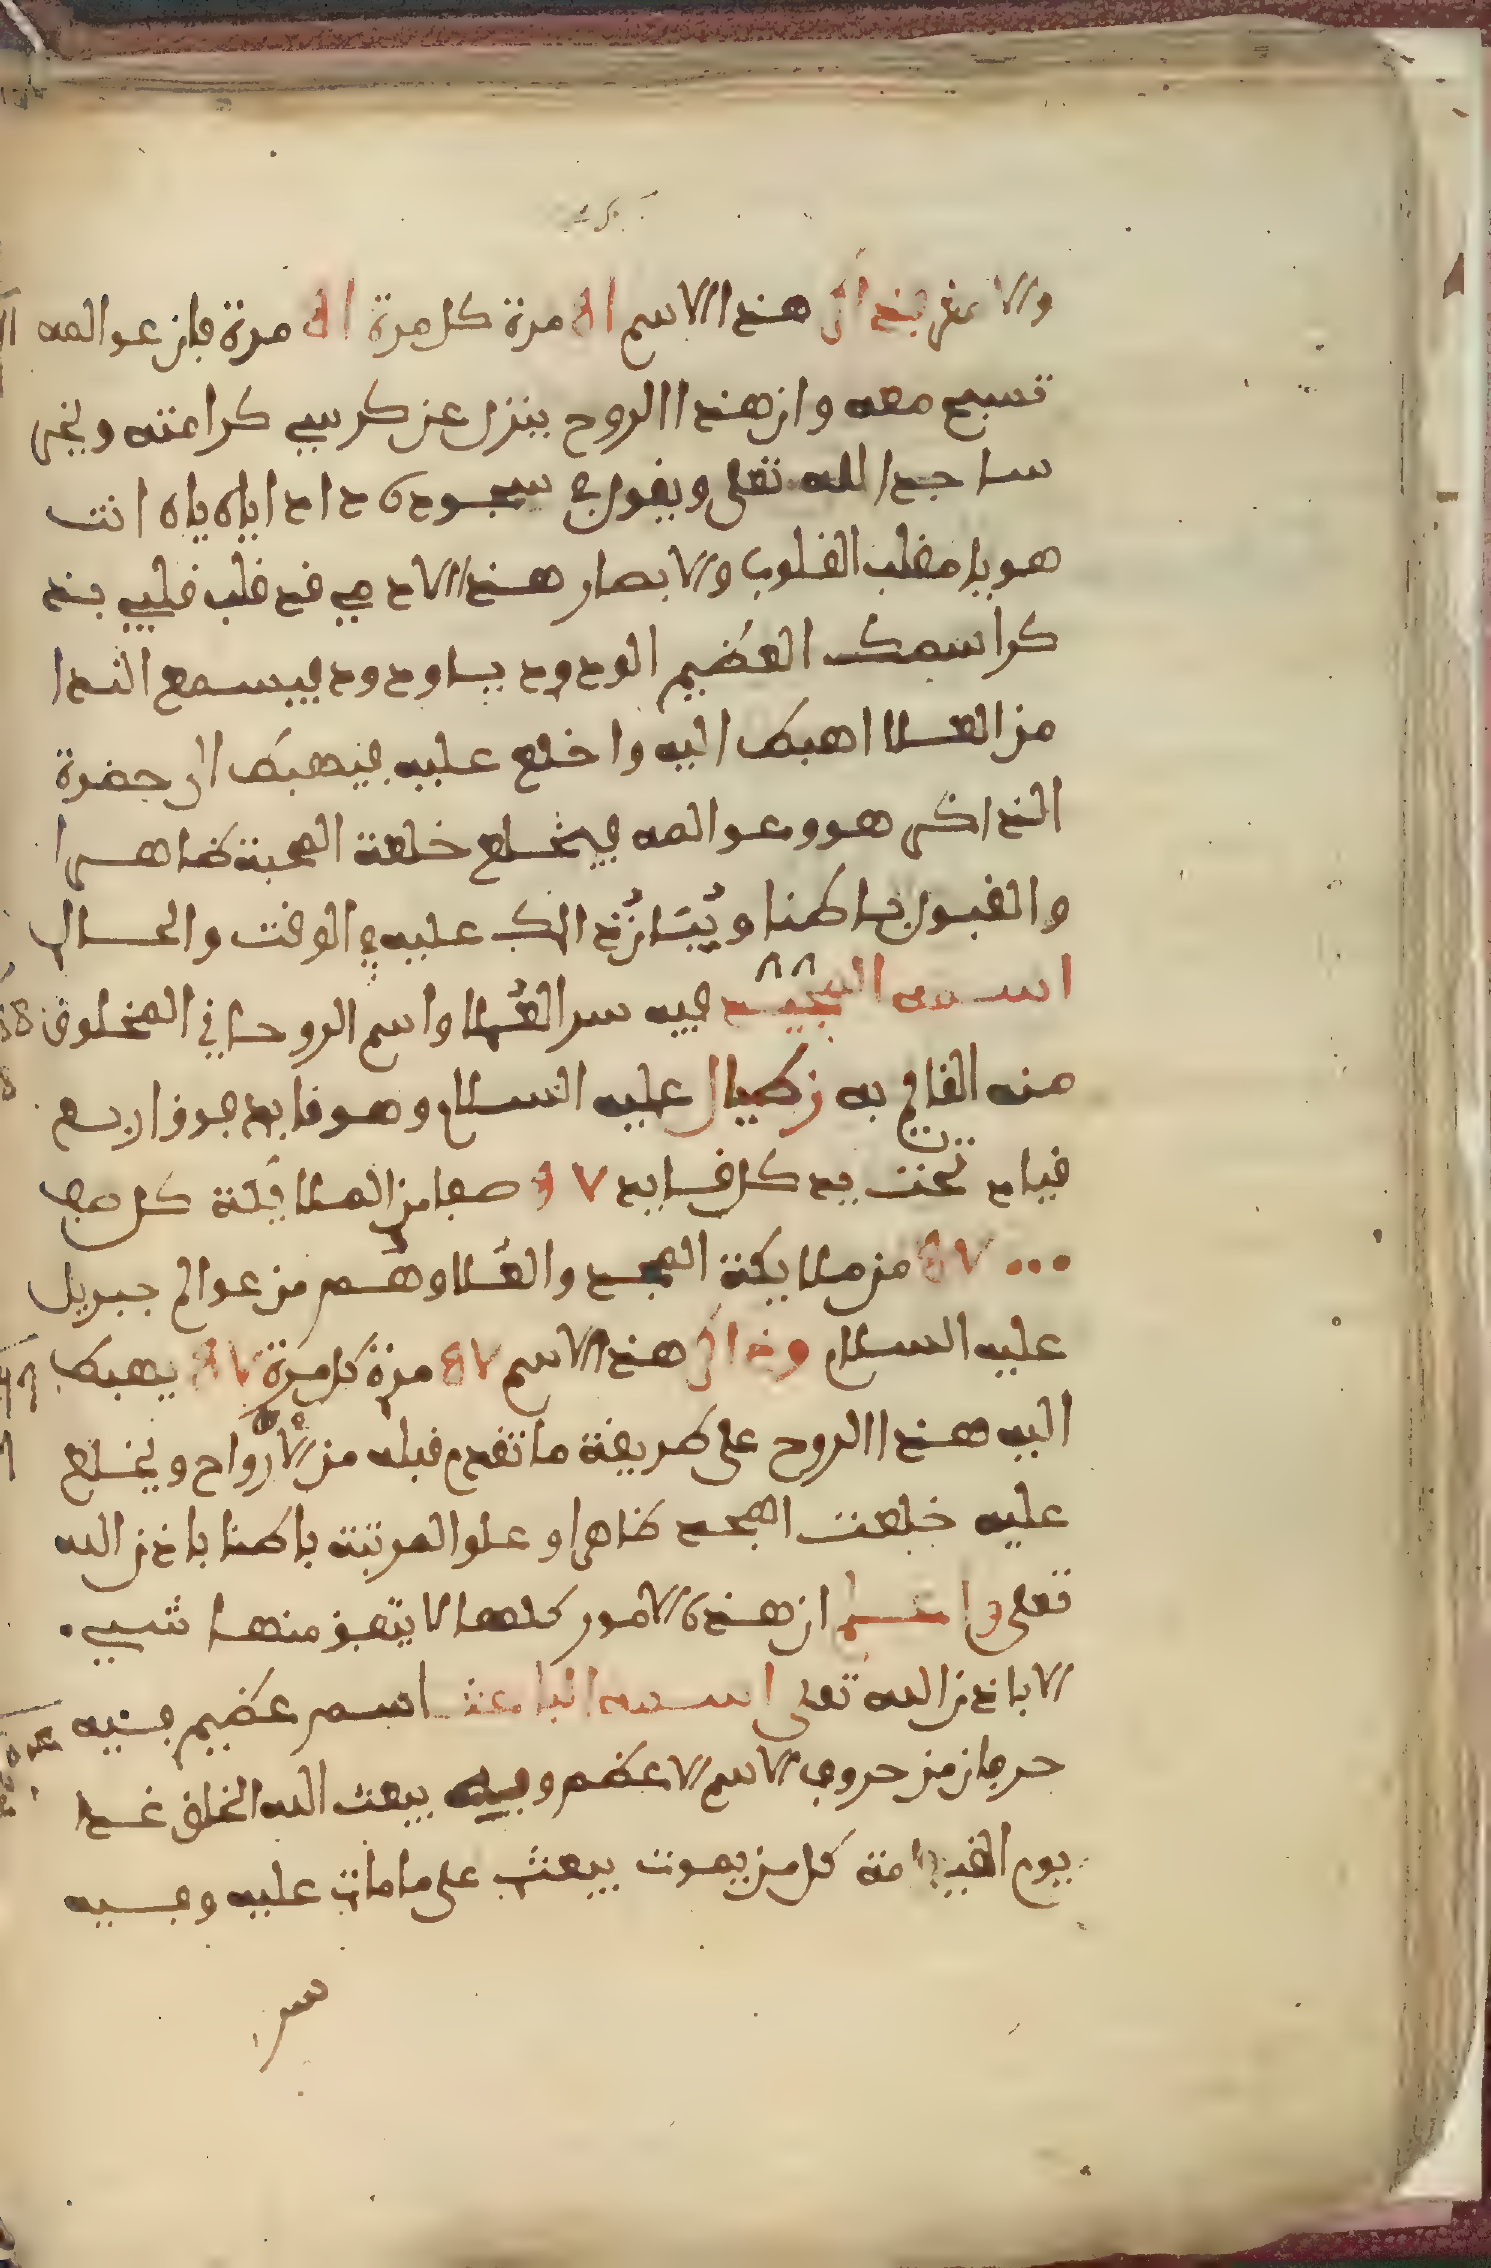 هذا الاسم مرة كل مرة مرة فإن عوالمه
تسبح معه وان هذا الروح ينزل عن كرسي كرامته ويخر
ساجدا لله تعلى ويقول في سجوده انت
هو يا مقلب القلوب والابصار هذا الادمي قد قلب قلبي بذ
كر اسمك العظيم الودود يا ودود فيسمع الندا
من العلا اهبط اليه واخلع عليه فيهبط الى حضرة
الذاكر هو وعوالمه فيخلع خلعة المحبة ظاهرا
والقبول باطنا عليه في الوقت والحال
اسمه المجيد فيه سر العلا واسم الروحاني المخلوق
منه القايم به زطيال عليه السلام وهو قايد فوق اربع
قياد تحت يد كل قايد ٧ صفا من الملايكة كل صف
من ملايكة المجد والعلا وهم من عوالم جبريل
عليه السلام وذاكر هذا الاسم مرة كل مرة يهبط
اليه هذا الروح على طريقة ما تقدم قبله من الارواح ويخلع
عليه خلعت المجد ظاهرا وعلو المرتبة باطنا باذن الله
تعلى واعلم ان هذه الامور كلها لا يتفق منها شيء
الا باذن الله تعلى اسمه الباعث اسم عظيم فيه
حرفان من حروف الاسم الاعظم وبه يبعث الله الخلق غدا
يوم القيامة كل من يموت يبعث على ما مات عليه وفيه
سر